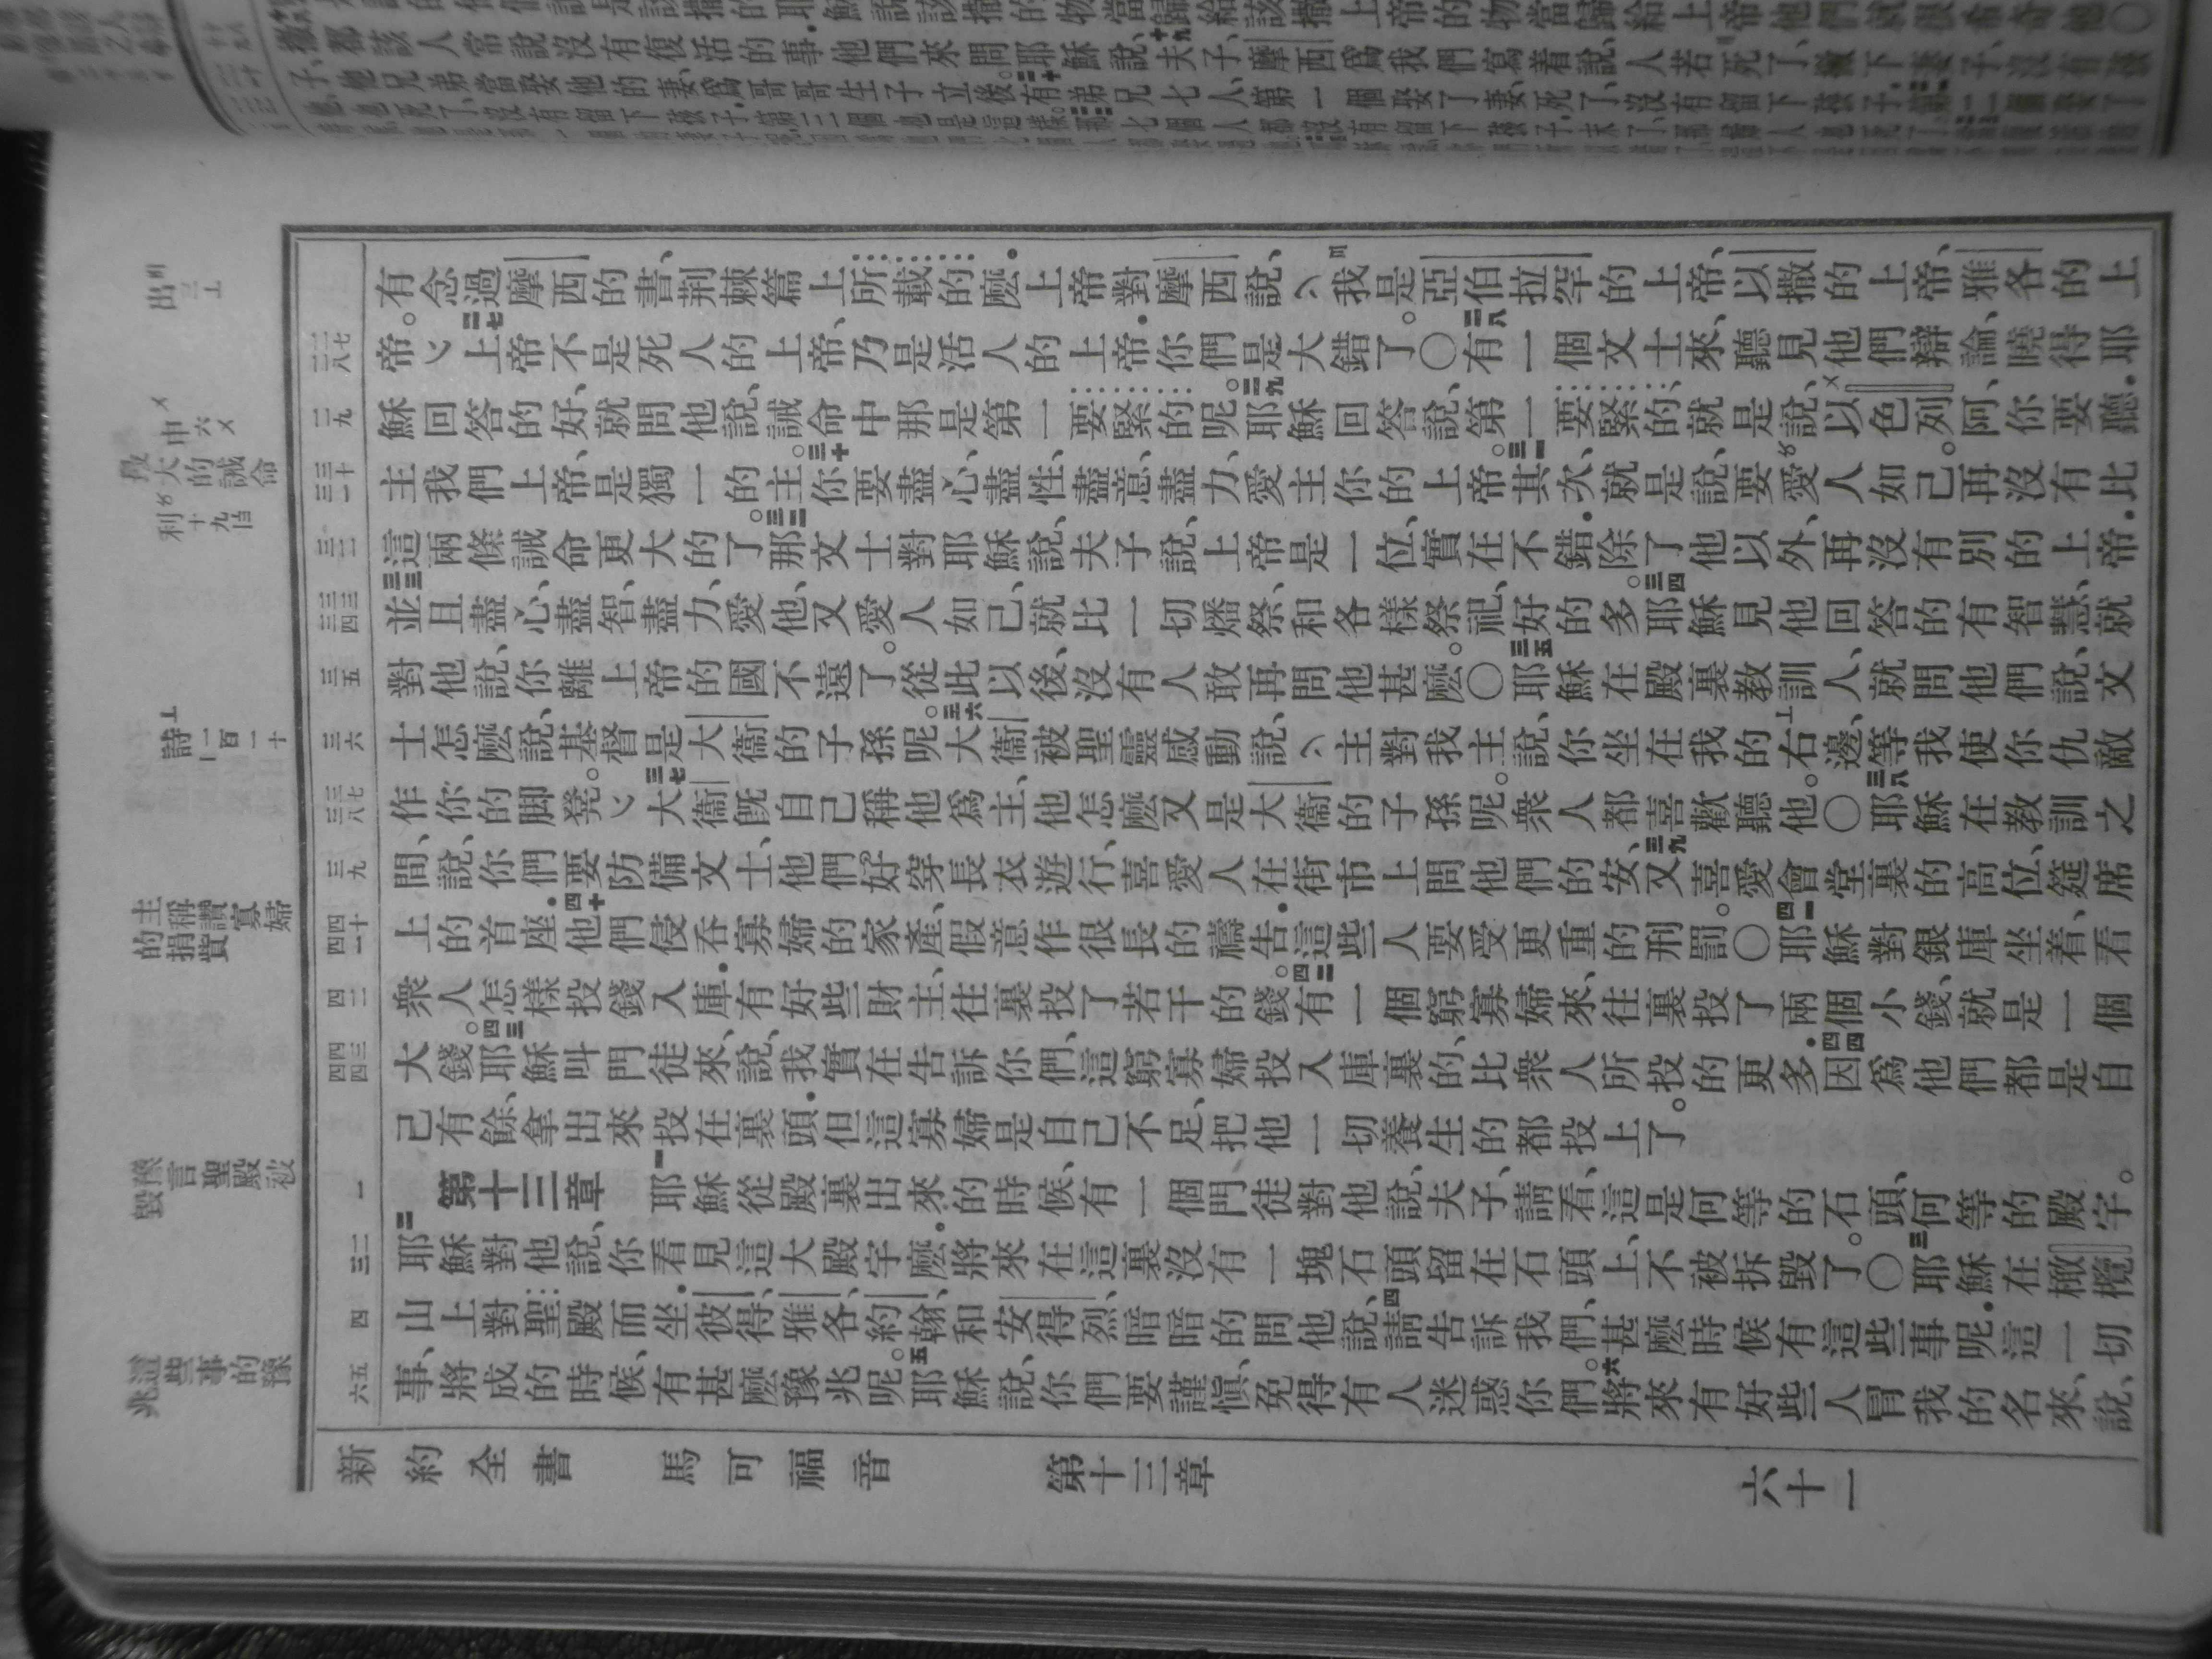 撒都該人常說沒有復活的事他們來問耶穌說、十九夫子、摩西爲我們寫着說、人若死了、撇下妻子、沒有孩
子、他兄弟當娶他的妻、爲哥哥生子立後。二十有弟兄七人、第一個娶了妻、死了、沒有留下孩子、
出三
最大的誡命
申六
利十九
詩一百一十
主稱讚寡婦的捐貲
豫言聖殿被毀
這些事的豫兆
有念過摩西的書、荆棘篇上所載的麽。上帝對摩西說、我是亞伯拉罕的上帝、以撒的上帝、雅各的上
二七 二八
帝。二七上帝不是死人的上帝、乃是活人的上帝．你們是大錯了。〇二八有一個文士來、聽見他們辯論、曉得耶
二九
穌回答的好、就問他說、誡命中那是第一要緊的呢。二九耶穌回答說、第一要緊的、就是說、以色列阿、你要聽．
三十 三一
主我們上帝、是獨一的主。三十你要盡心、盡性、盡意、盡力、愛主你的上帝。三一其次、就是說、要愛人如己。再沒有比
三二
這兩條誡命更大的了。三二那文士對耶穌說、夫子說、上帝是一位、實在不錯．除了他以外、再沒有別的上帝．
三三 三四
三三並且盡心、盡智、盡力、愛他、又愛人如己、就比一切燔祭、和各樣祭祀、好的多。三四耶穌見他回答的有智慧、就
三五
對他說、你離上帝的國不遠了。從此以後、沒有人敢再問他甚麽。〇三五耶穌在殿裏教訓人、就問他們說、文
三六
士怎麽說、基督是大衞的子孫呢。三六大衞被聖靈感動說、主對我主說、你坐在我的右邊、等我使你仇敵
三七 三八
作你的脚凳。三七大衞旣自己稱他爲主、他怎麽又是大衞的子孫呢。衆人都喜歡聽他。〇三八耶穌在教訓之
三九
間、說、你們要防備文士、他們好穿長衣遊行、喜愛人在街市上問他們的安、三九又喜愛會堂裏的高位、筵席
四十 四一
上的首座．四十他們侵吞寡婦的家產、假意作很長的禱告．這些人要受更重的刑罰。〇四一耶穌對銀庫坐着、看
四二
衆人怎樣投錢入庫．有好些財主、往裏投了若干的錢。四二有一個窮寡婦來、往裏投了兩個小錢、就是一個
四三 四四
大錢。四三耶穌叫門徒來、說、我實在告訴你們、這窮寡婦投入庫裏的、比衆人所投的更多．四四因爲他們都是自
己有餘、拿出來投在裏頭．但這寡婦是自己不足、把他一切養生的都投上了。
一
第十三章 一耶穌從殿裏出來的時候、有一個門徒對他說、夫子、請看、這是何等的石頭、何等的殿宇。
二 三
二耶穌對他說、你看見這大殿宇麽．將來在這裏沒有一塊石頭留在石頭上、不被拆毀了。〇三耶穌在橄欖
四
山上對聖殿而坐．彼得、雅各、約翰、和安得烈、暗暗的問他說、四請告訴我們、甚麽時候有這些事呢．這一切
五 六
事、將成的時候、有甚麽豫兆呢。五耶穌說、你們要謹愼、免得有人迷惑你們。六將來有好些人冒我的名來、說、
新約全書 馬可福音 第十三章 六十一